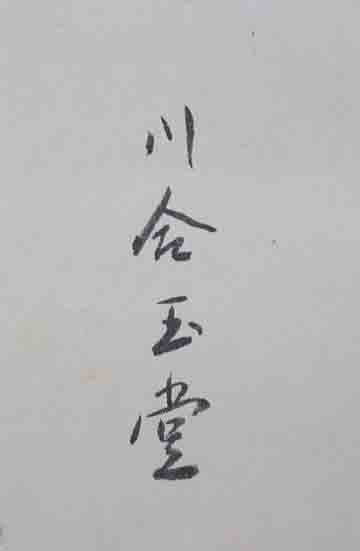 川合玉堂